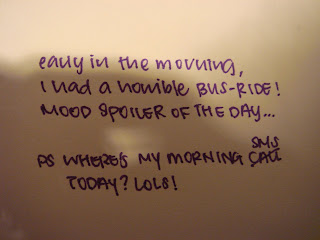 early in the morning,
I had a horrible BUS-RIDE!
MOOD SPOILER OF THE DAY...
SMS
PS WHERE'S MY MORNING CALL
TODAY? LOLS!